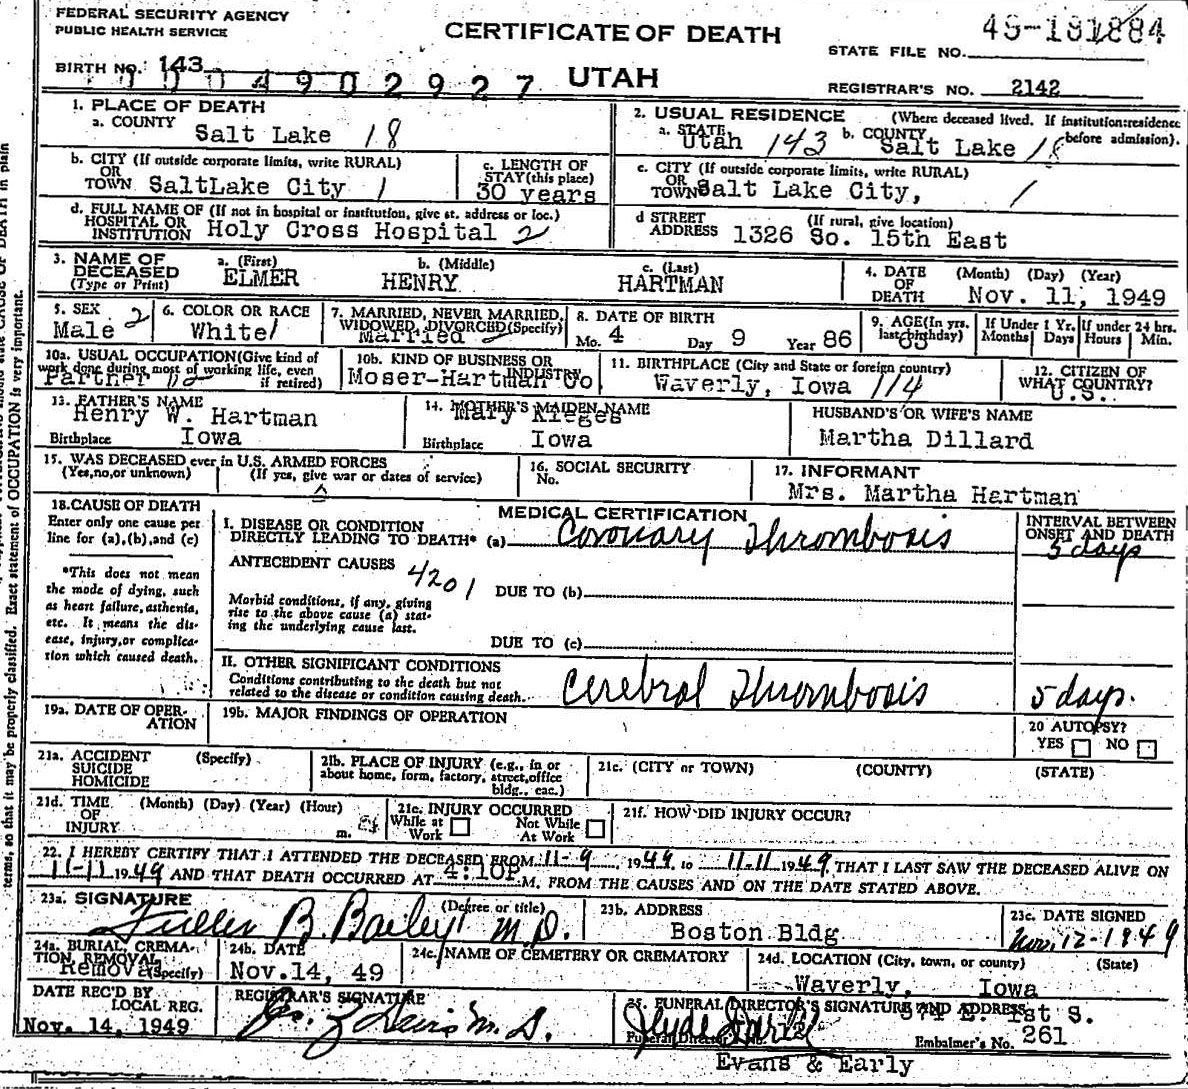 FEDERAL SECURITY AGENCY
PUBLIC HEALTH SERVICE
CERTIFICATE OF DEATH
UTAH
49-181884
STATE FILE NO.
BIRTH NO. 143
004902927
REGISTRAR'S NO. 2142
1. PLACE OF DEATH
a. COUNTY Salt Lake 18
2. USUAL RESIDENCE (Where deceased lived. If institution: residence before admission).
a. STATE Utah 143 b. COUNTY Salt Lake 18
b. CITY (If outside corporate limits, write RURAL) OR TOWN SaltLake City 1
c. LENGTH OF STAY (this place) 30 years
c. CITY (If outside corporate limits, write RURAL) OR TOWN Salt Lake City, 1
d. FULL NAME OF (If not in hospital or institution, give st. address or loc.) HOSPITAL OR INSTITUTION Holy Cross Hospital 2
d STREET ADDRESS (If rural, give location) 1326 So. 15th East
3. NAME OF DECEASED (Type or Print)
a. (First) ELMER
b. (Middle) HENRY
c. (Last) HARTMAN
4. DATE OF DEATH (Month) (Day) (Year) Nov. 11, 1949
5. SEX Male 2
6. COLOR OR RACE White 1
7. MARRIED, NEVER MARRIED, WIDOWED, DIVORCED (Specify) Married 2
8. DATE OF BIRTH
Mo. 4 Day 9 Year 86
9. AGE (In yrs. last birthday) 63
If Under 1 Yr. Months Days
If under 24 hrs. Hours Min.
10a. USUAL OCCUPATION (Give kind of work done during most of working life, even if retired) Partner
10b. KIND OF BUSINESS OR INDUSTRY Moser-Hartman Co
11. BIRTHPLACE (City and State or foreign country) Waverly, Iowa 114
12. CITIZEN OF WHAT COUNTRY? U.S.
13. FATHER'S NAME Henry W. Hartman
Birthplace Iowa
14. MOTHER'S MAIDEN NAME Mary Kieges
Birthplace Iowa
HUSBAND'S OR WIFE'S NAME
Martha Dillard
15. WAS DECEASED ever in U.S. ARMED FORCES
(Yes, no, or unknown) (If yes, give war or dates of service)
16. SOCIAL SECURITY No.
17. INFORMANT
Mrs. Martha Hartman
18. CAUSE OF DEATH
Enter only one cause per line for (a), (b), and (c)
*This does not mean the mode of dying, such as heart failure, asthenia, etc. It means the disease, injury, or complication which caused death.
MEDICAL CERTIFICATION
I. DISEASE OR CONDITION DIRECTLY LEADING TO DEATH* (a) Coronary Thrombosis
INTERVAL BETWEEN ONSET AND DEATH
5 days
ANTECEDENT CAUSES 4201
Morbid conditions, if any, giving rise to the above cause (a) stating the underlying cause last.
DUE TO (b)
DUE TO (c)
II. OTHER SIGNIFICANT CONDITIONS
Conditions contributing to the death but not related to the disease or condition causing death. Cerebral Thrombosis
5 days.
19a. DATE OF OPERATION
19b. MAJOR FINDINGS OF OPERATION
20 AUTOPSY?
YES NO
21a. ACCIDENT SUICIDE HOMICIDE (Specify)
21b. PLACE OF INJURY (e.g., in or about home, form, factory, street, office bldg., eac.)
21c. (CITY or TOWN) (COUNTY) (STATE)
21d. TIME OF INJURY (Month) (Day) (Year) (Hour) m.
21e. INJURY OCCURRED
While at Work Not While At Work
21f. HOW DID INJURY OCCUR?
22. I HEREBY CERTIFY THAT I ATTENDED THE DECEASED FROM 11-9 1949 to 11-11 1949, THAT I LAST SAW THE DECEASED ALIVE ON
11-11 1949 AND THAT DEATH OCCURRED AT 4:10P M. FROM THE CAUSES AND ON THE DATE STATED ABOVE.
23a. SIGNATURE (Degree or title)
Fuller B. Bailey M.D.
23b. ADDRESS
Boston Bldg
23c. DATE SIGNED
Nov. 12-1949
24a. BURIAL, CREMATION, REMOVAL (Specify) Removal
24b. DATE
Nov.14, 49
24c. NAME OF CEMETERY OR CREMATORY
24d. LOCATION (City, town, or county) (State)
Waverly, Iowa
DATE REC'D BY LOCAL REG.
Nov. 14, 1949
REGISTRAR'S SIGNATURE
M.D.
25. FUNERAL DIRECTOR'S SIGNATURE AND ADDRESS
574 E. 1st S.
Embalmer's No. 261
Evans & Early
terms, so that it may be properly classified. Exact statement of OCCUPATION is very important.